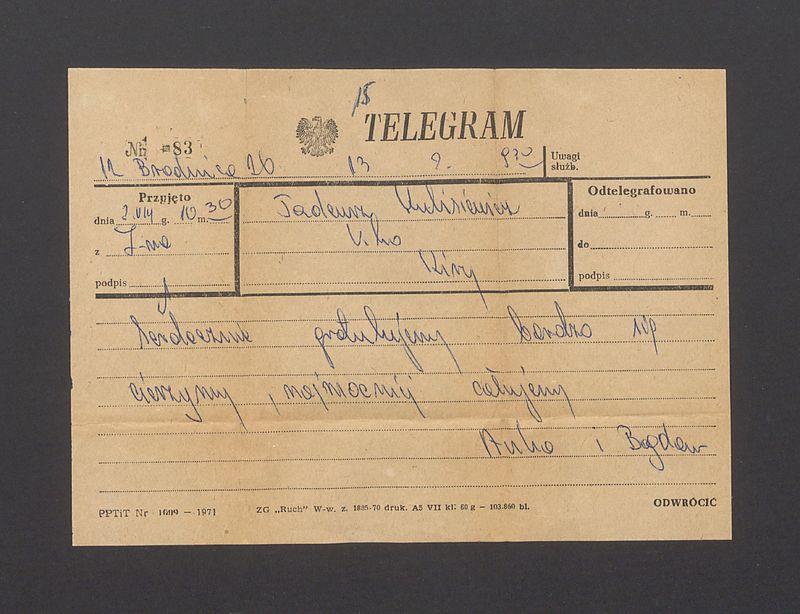 15
TELEGRAM
Nr 1 -83
12 Brodnica 26 13 2. 930
Uwagi
służb.
Przyjęto
dnia 2 VIII g. 10 m. 30
z J-na
podpis
Tadeusz Kulisiewicz
Odtelegrafowano
dnia g. m.
do
podpis
Serdecznie gratulujemy bardzo się
cieszymy, najmocniej całujemy
Anka i Bogdan
PPTiT Nr 1009 — 1971
ZG „Ruch" W-w. z. 1885-70 druk. A5 VII kl: 60 g — 103.860 bl.
ODWRÓCIĆ